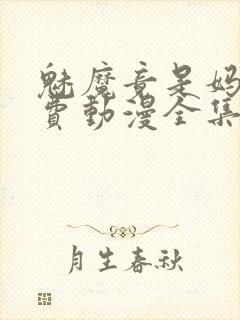 魅魔竟是妈
费动漫全集
月生春秋